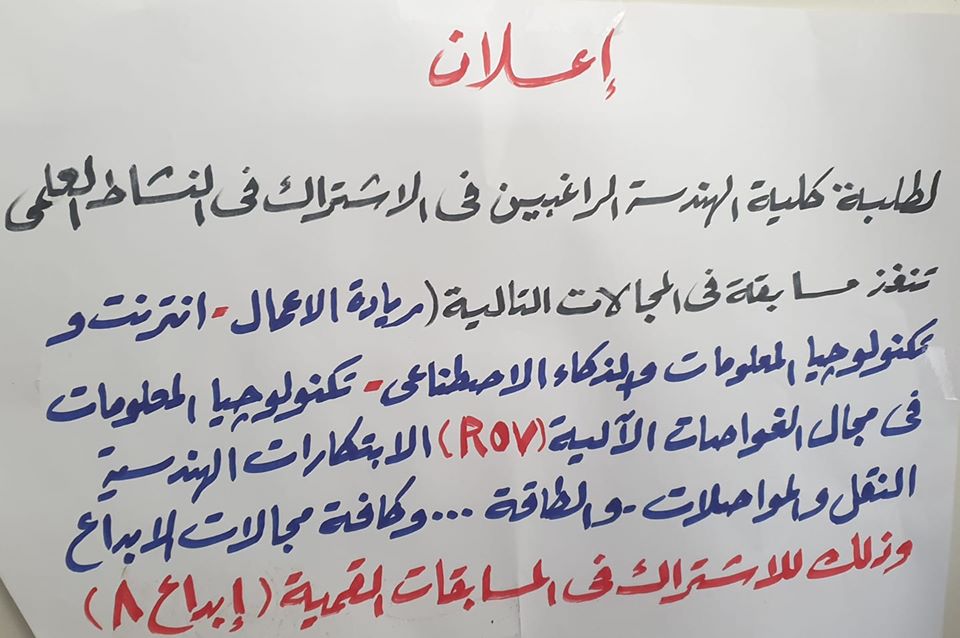 إعلان
لطلبة كلية الهندسة الراغبين فى الاشتراك فى النشاط العلمى
تنفذ مسابقة فى المجالات التالية (ريادة الاعمال - انترنت و
تكنولوجيا المعلومات والذكاء الاصطناعى - تكنولوجيا المعلومات
فى مجال الغواصات الآلية (ROV) الابتكارات الهندسية
النقل والمواصلات - والطاقة ... وكافة مجالات الابداع
وذلك للاشتراك فى المسابقات القمية (إبداع ٨)